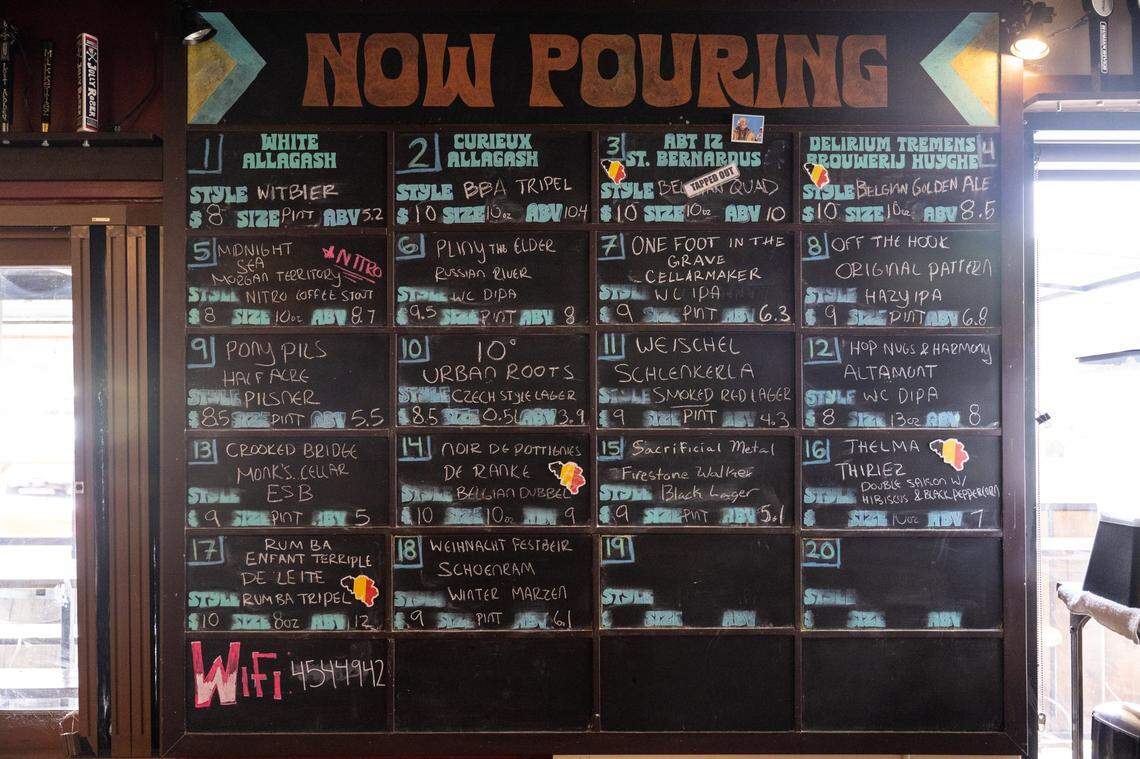 NOW POURING
JOLLY ROGER
1 WHITE
ALLAGASH
STYLE WITBIER
$ 8 SIZE PINT ABV 5.2
2 CURIEUX
ALLAGASH
STYLE BBA TRIPEL
$ 10 SIZE 10oz ABV 10.4
3 ABT 12
ST. BERNARDUS
STYLE BELGIAN QUAD
TAPPED OUT
$ 10 SIZE 10oz ABV 10
DELIRIUM TREMENS 4
BROUWERIJ HUYGHE
STYLE BELGIAN GOLDEN ALE
$ 10 SIZE 10oz ABV 8.5
5 MIDNIGHT
SEA
NITRO
MORGAN TERRITORY
STYLE NITRO COFFEE STOUT
$ 8 SIZE 10oz ABV 8.7
6 PLINY THE ELDER
RUSSIAN RIVER
STYLE WC DIPA
$ 9.5 SIZE PINT ABV 8
7 ONE FOOT IN THE
GRAVE
CELLARMAKER
STYLE WC IPA
$ 9 SIZE PINT ABV 6.3
8 OFF THE HOOK
ORIGINAL PATTERN
STYLE HAZY IPA
$ 9 SIZE PINT ABV 6.8
9 PONY PILS
HALF ACRE
STYLE PILSNER
$ 8.5 SIZE PINT ABV 5.5
10 10°
URBAN ROOTS
STYLE CZECH STYLE LAGER
$ 8.5 SIZE 0.5L ABV 3.9
11 WEISCHEL
SCHLENKERLA
STYLE SMOKED RED LAGER
$ 9 SIZE PINT ABV 4.3
12 HOP NUGS & HARMONY
ALTAMONT
STYLE WC DIPA
$ 8 SIZE 13oz ABV 8
13 CROOKED BRIDGE
MONK'S CELLAR
ESB
STYLE
$ 9 SIZE PINT ABV 5
14 NOIR DE POTTIGNIES
DE RANKE
STYLE BELGIAN DUBBEL
$ 10 SIZE 10oz ABV 9
15 Sacrificial Metal
Firestone Walker
STYLE Black Lager
$ 9 SIZE PINT ABV 5.1
16 THELMA
THIRIEZ
DOUBLE SAISON W/
STYLE HIBISCUS & BLACK PEPPERCORN
$ SIZE 10oz ABV 7
17 RUM BA
ENFANT TERRIPLE
DE LEITE
STYLE RUM BA TRIPEL
$ 10 SIZE 8oz ABV 12
18 WEIHNACHT FESTBEIR
SCHOENRAM
STYLE WINTER MARZEN
$ 9 SIZE PINT ABV 6.1
19
STYLE
$ SIZE ABV
20
STYLE
$ SIZE ABV
WiFi: 4544942